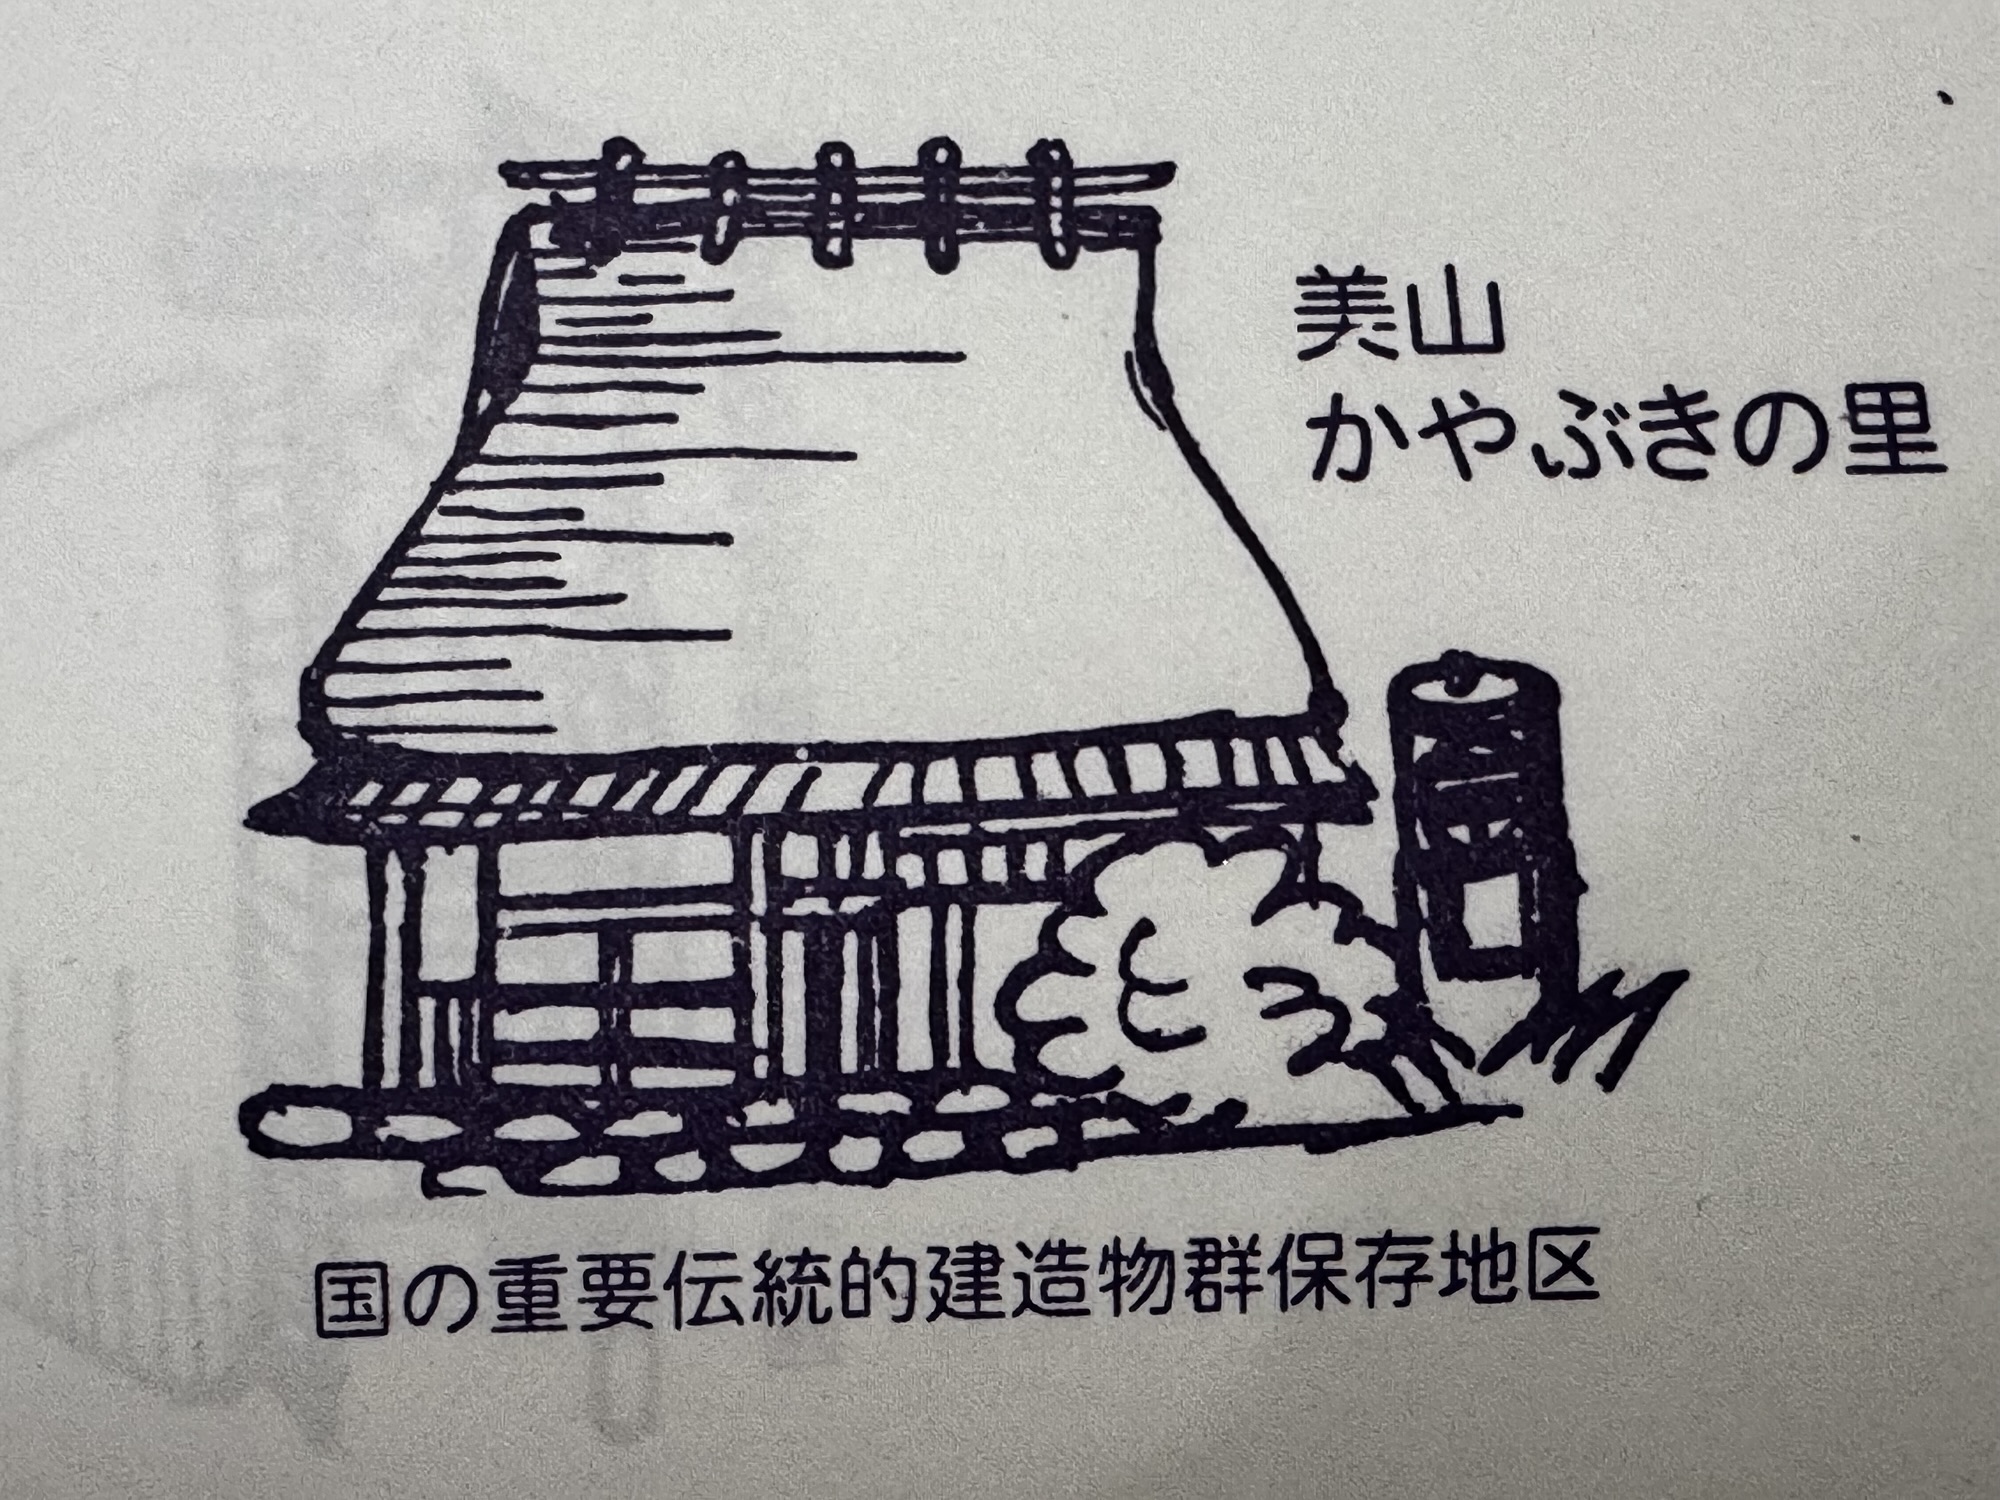 美山
かやぶきの里
国の重要伝統的建造物群保存地区